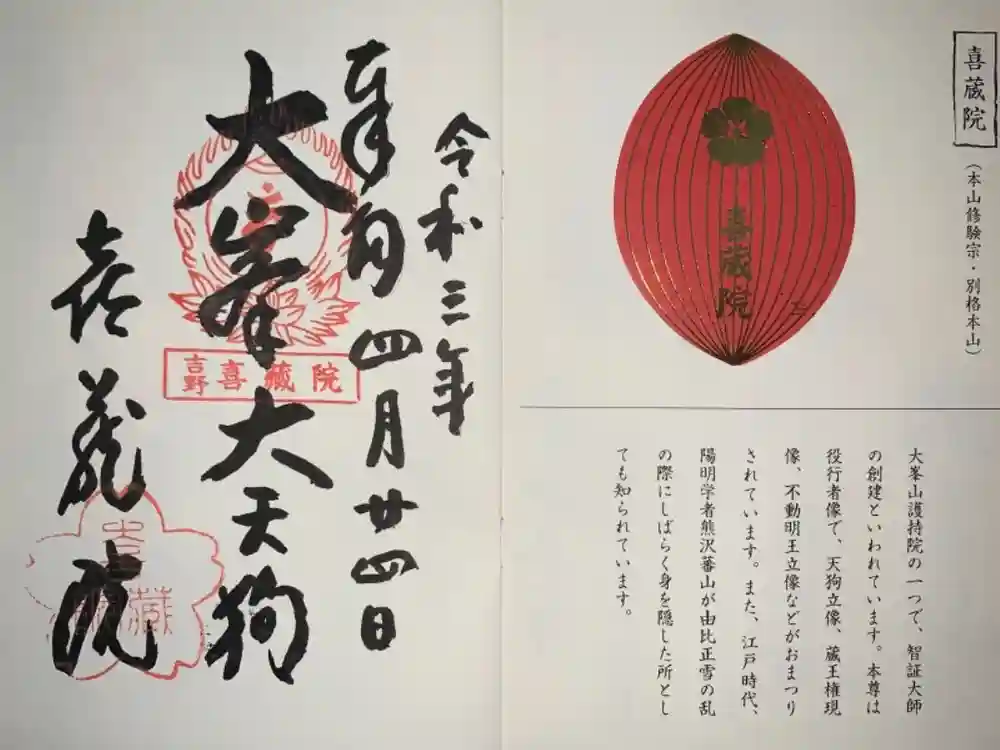 喜蔵院
(本山修験宗・別格本山)
喜蔵院
大峯山護持院の一つで、智証大師
の創建といわれています。本尊は
役行者像で、天狗立像、蔵王権現
像、不動明王立像などがおまつり
されています。また、江戸時代、
陽明学者熊沢蕃山が由比正雪の乱
の際にしばらく身を隠した所とし
ても知られています。
令和三年
奉拝 四月廿四日
大峯大天狗
喜蔵院
吉野喜蔵院